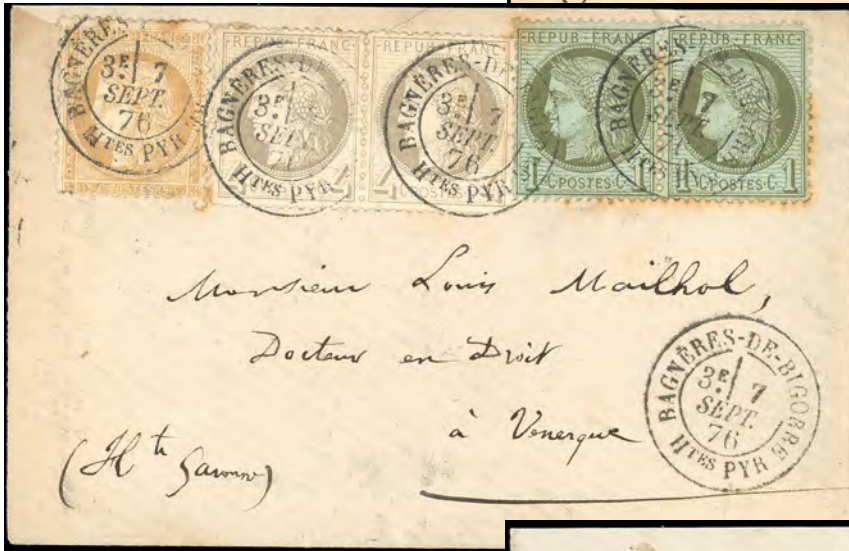 BAGNÈRES
3E 7
SEPT.
76
HTES PYR
REPUB. FRANC.
BAGNÈRES-DE
3E
SEPT.
HTES PYR
4
REPUB. FRANC.
BAGNÈRES-DE
3E 7
SEPT.
76
HTES PYR
4
REPUB. FRANC.
1 C. POSTES C. 1
REPUB. FRANC.
BAGNÈRES
7
1 C. POSTES C. 1
Monsieur Louis Mailhol,
Docteur en Droit
à Venerque
(Hte Garonne)
BAGNÈRES-DE-BIGORRE
3E 7
SEPT.
76
HTES PYR